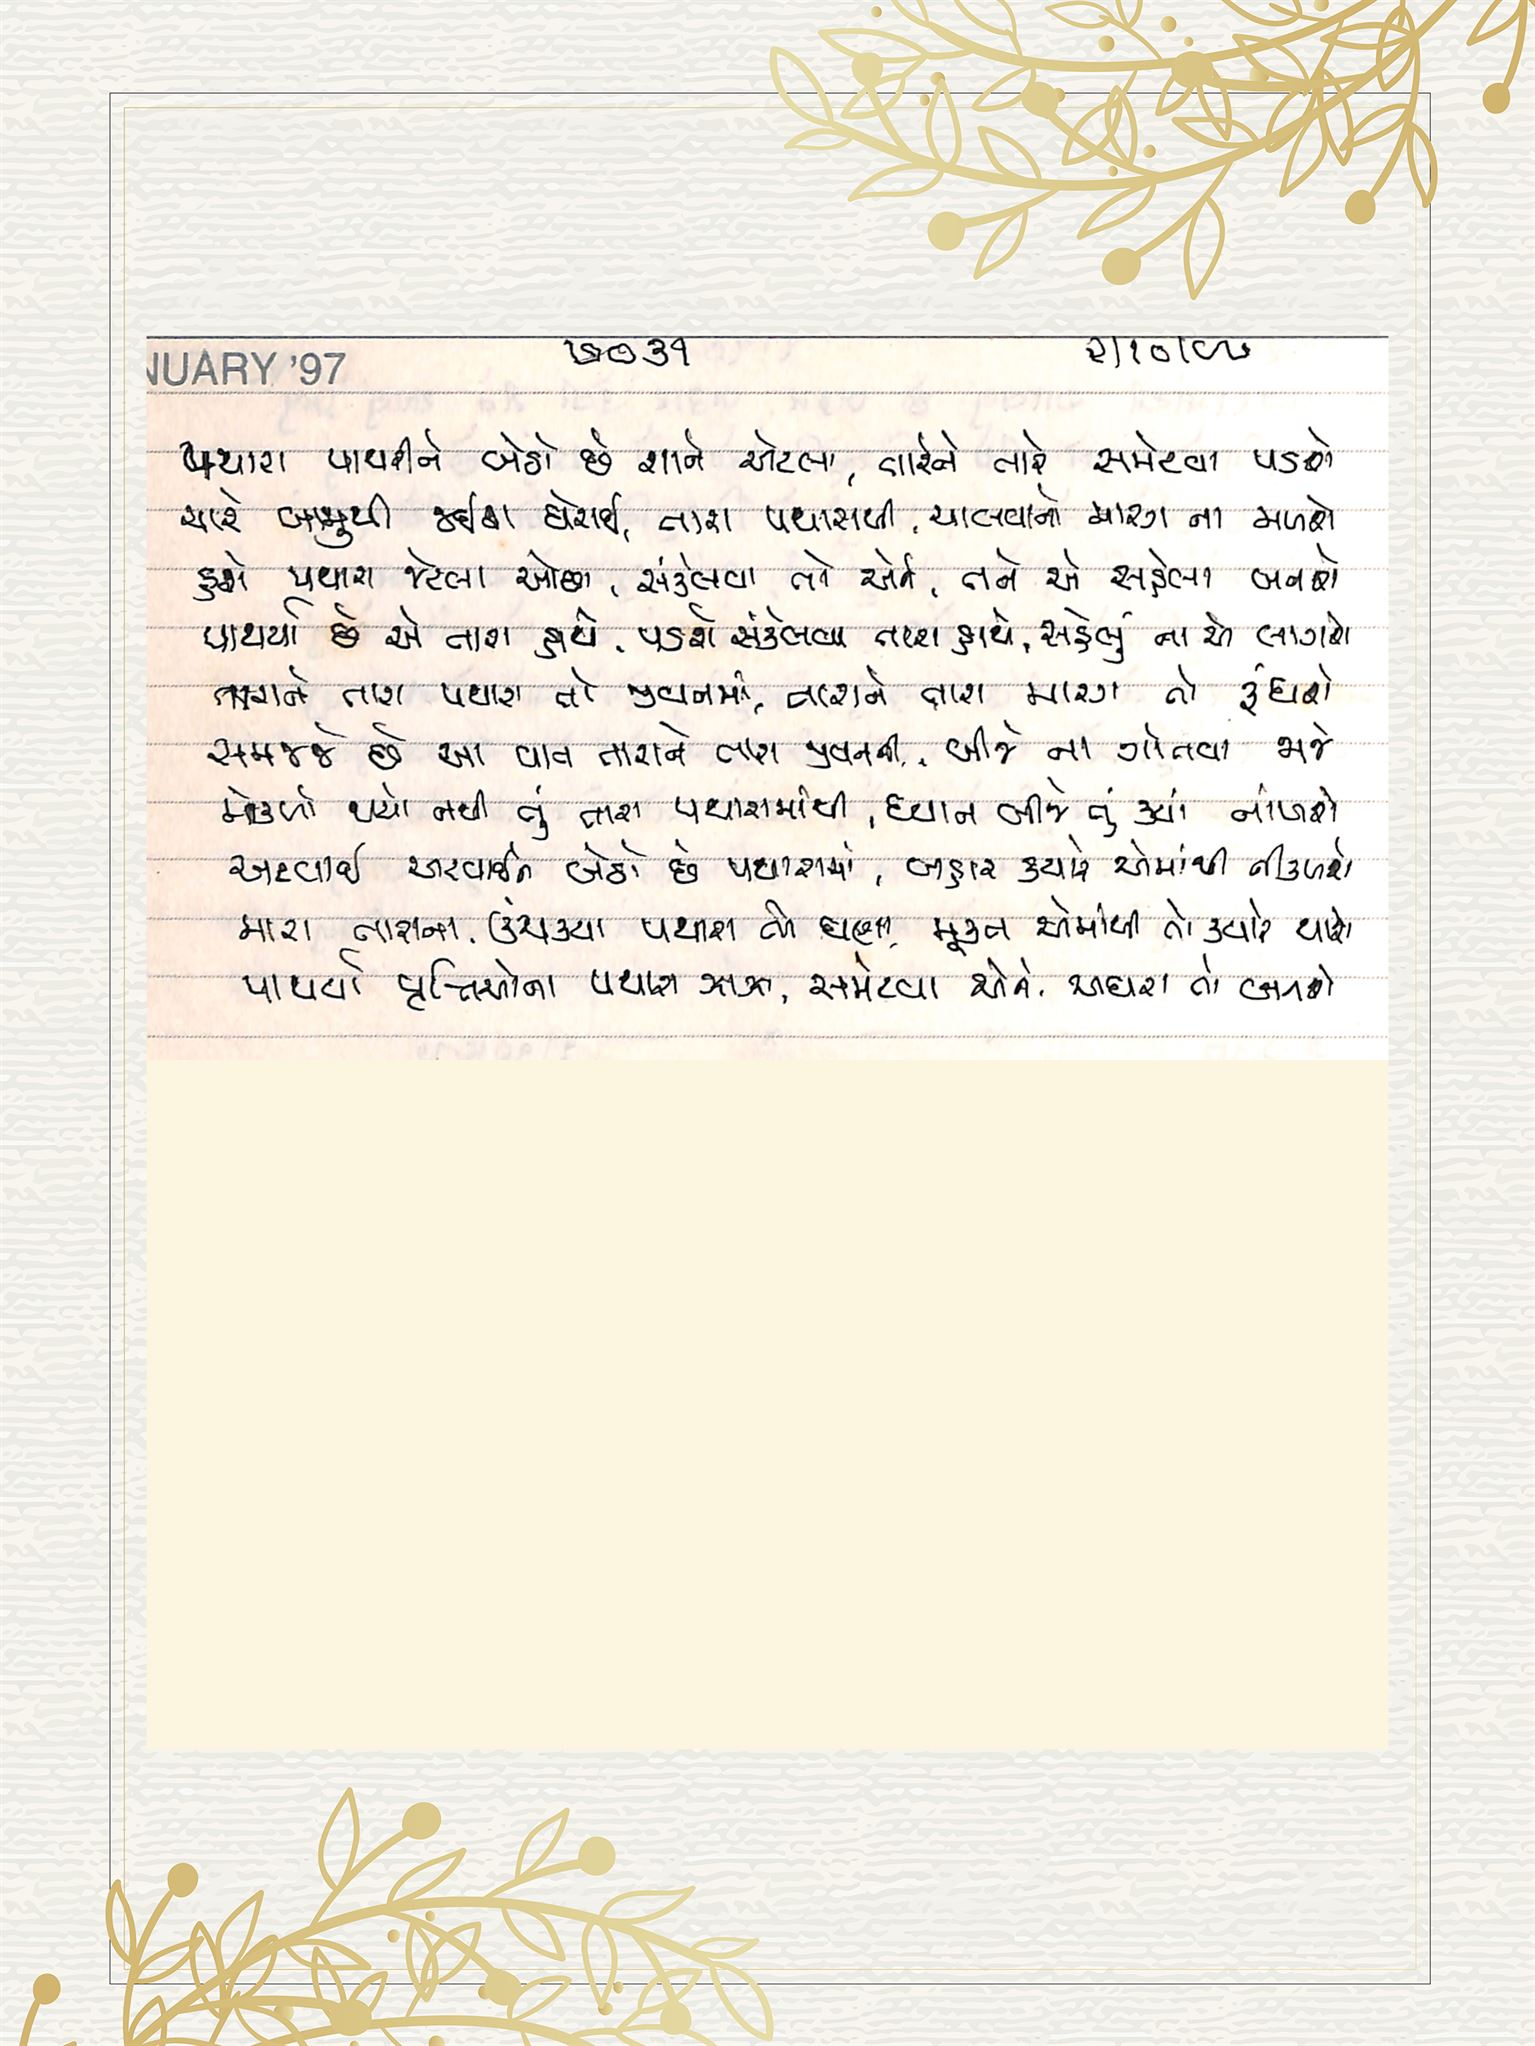 NUARY '97 ૭૦૩૧ ૨/૧૦/૯૭
પથારા પાથરીને બેઠો છે શાને એટલા, તારેને તારે સમેટવા પડશે
ચારે બાજુથી જઈશ ઘેરાઈ, તારા પથારાથી, ચાલવાનો મારગ ના મળશે
હશે પથારા જેટલા ઓછા, સંકેલવા તો એને, તને એ સહેલા બનશે
પાથર્યા છે એ તારા હાથે, પડશે સંકેલવા તારા હાથે, સહેલું ના એ લાગશે
તારાને તારા પથારા તો જીવનમાં, તારાને તારા મારગ તો રૂંધશે
સમજજે છે આ વાત તારાને તારા જીવનની, બીજે ના ગોતવા જાજે
મોકળો થયો નથી તું તારા પથારામાંથી, ધ્યાન બીજે તું ક્યાં નાંખશે
અટવાઈ અટવાઈને બેઠો છે પથારામાં, બહાર ક્યારે એમાંથી નીકળશે
મારા તારાના, ઉંચક્યા પથારા તેં ઘણા, મૂક્ત એમાંથી તો ક્યારે થાશે
પાથર્યા વૃત્તિઓના પથારા ઝાઝા, સમેટવા એને, અઘરા તો બનશે